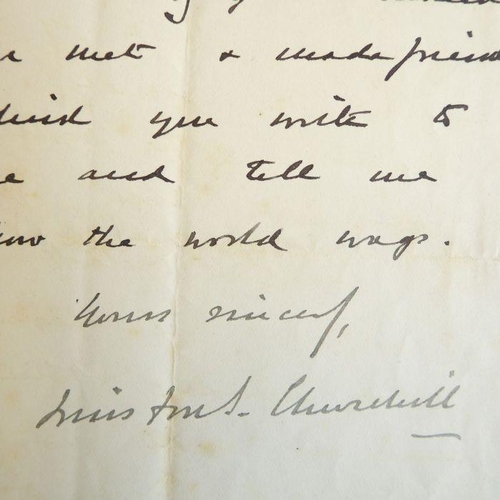 met & made friend
mind you write to
e and tell me
how the world wags.
Yours sincerely,
Winston S. Churchill